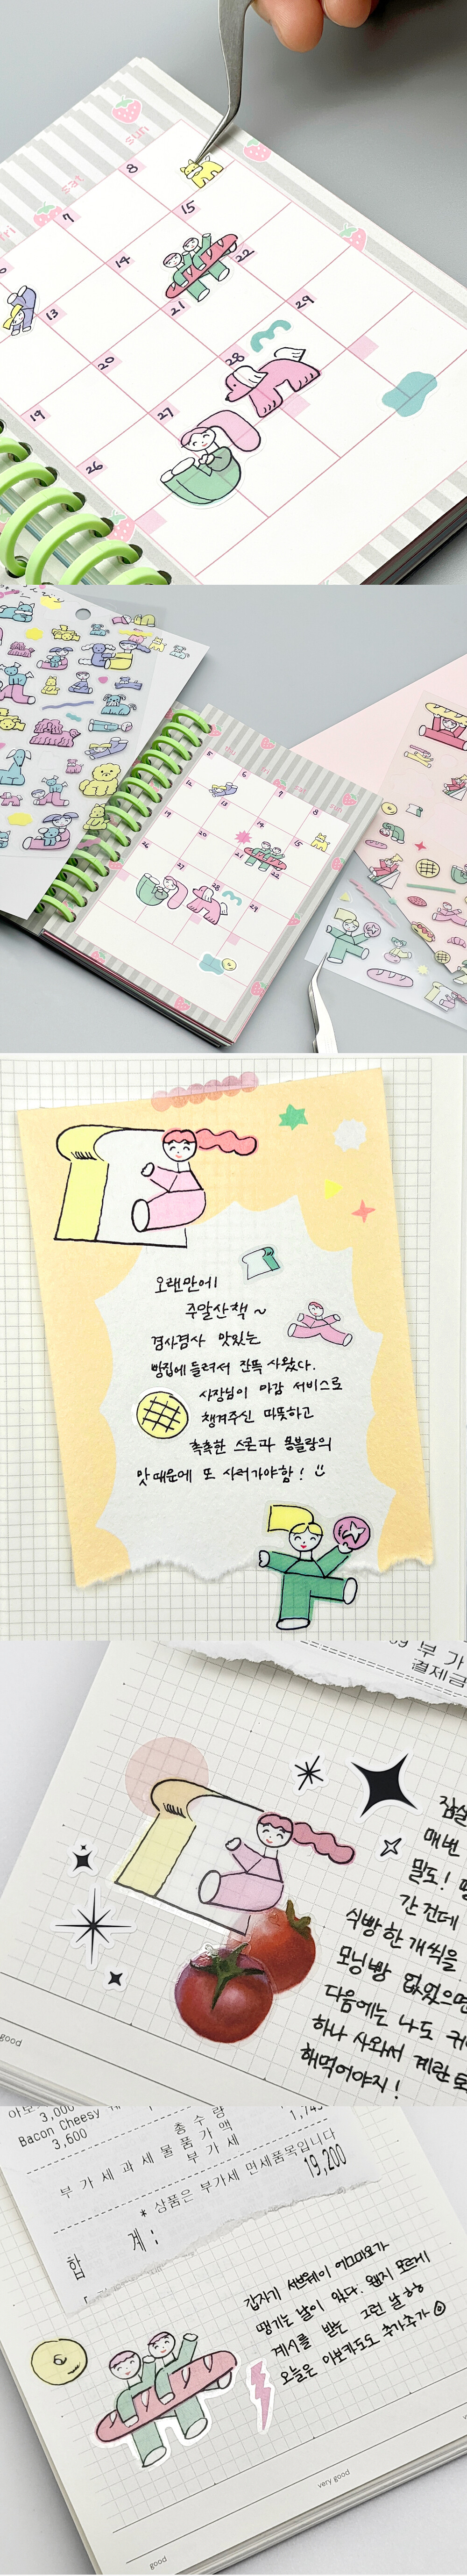 sun
sat
fri
8
7
15
14
13
22
21
20
19
29
28
27
26
5
6
7
8
12
13
14
15
19
20
21
22
26
27
28
29
오랜만에
주말산책~
겸사겸사 맛있는
빵집에 들려서 잔뜩 사왔다.
사장님이 마감 서비스로
챙겨주신 따뜻하고
촉촉한 스콘과 몽블랑의
맛 때문에 또 사러가야함!
부가
결제금
잠실
매번
말도!
간건데
식빵 한 개씩을
모닝빵 없었으면
다음에는 나도
하나 사와서 계란토
해먹어야지!
good
3,000
Bacon Cheesy
3,600
총 수 량
부 가 세 과 세 물 품 가 액
1,745
부 가 세
* 상품은 부가세 면세품목입니다
합 계:
19,200
갑자기 서브웨이 에그마요가
땡기는 날이 있다. 왠지 모르게
계시를 받는 그런 날ㅎㅎ
오늘은 아보카도도 추가추가
very good
good